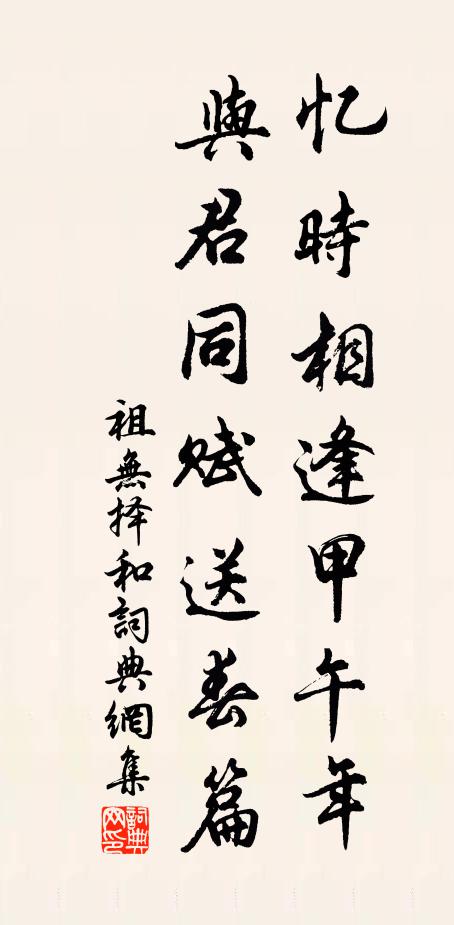 忆時相逢甲午年
與君同赋送春篇
祖無择和詞典網集
詞典网印